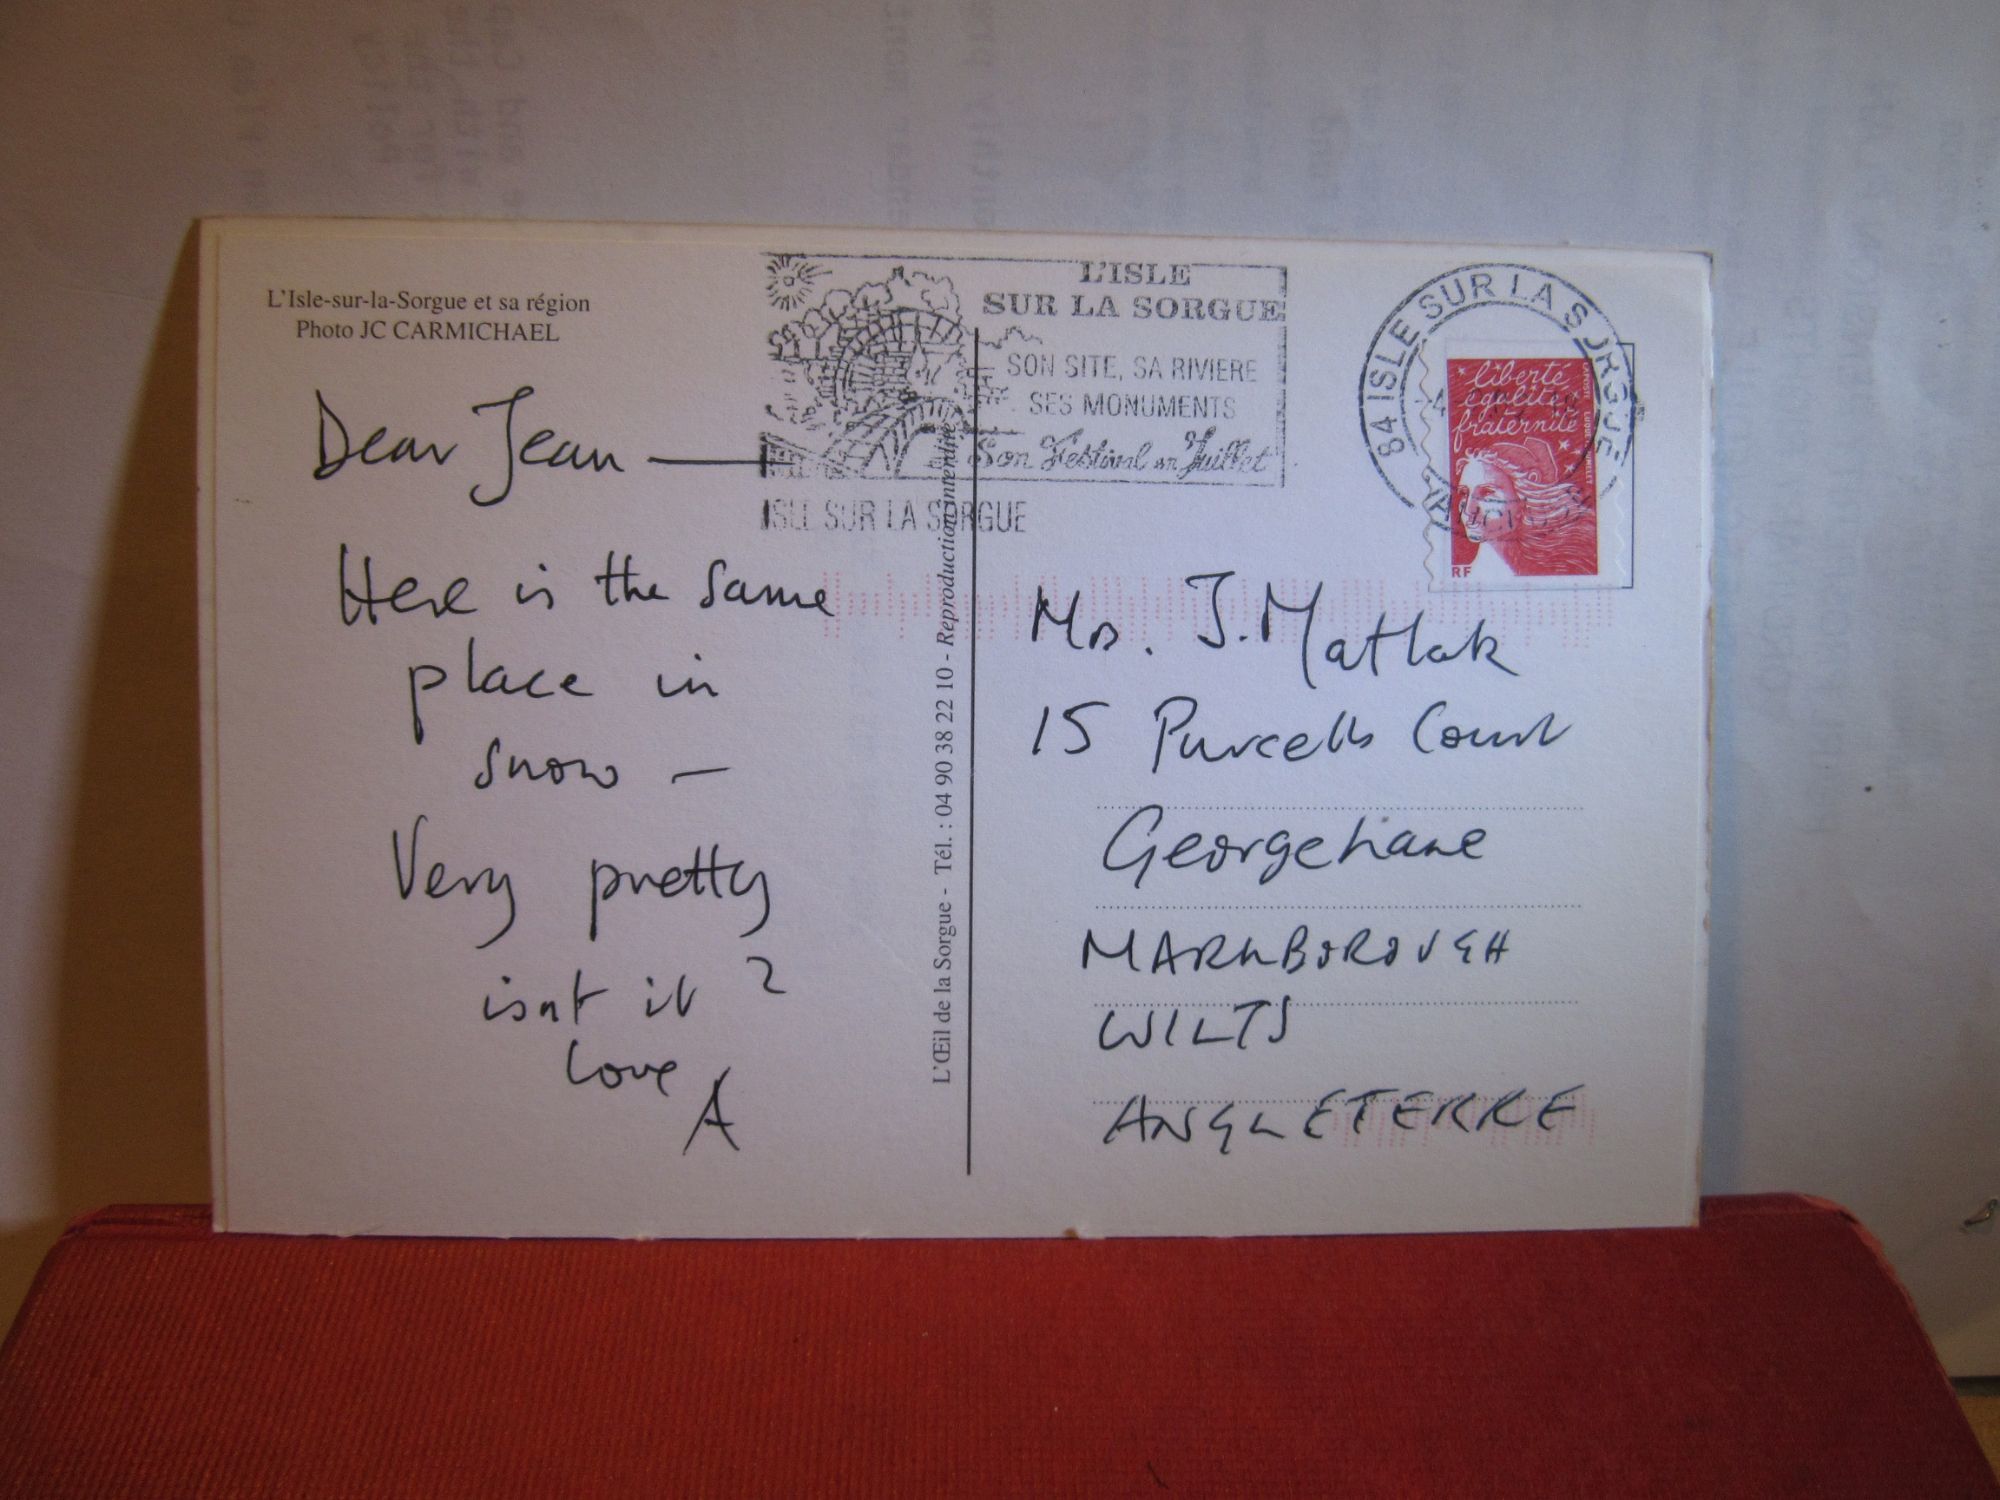 L'Isle-sur-la-Sorgue et sa région
Photo JC CARMICHAEL
Dear Jean —
Here is the same
place in
snow —
Very pretty
isnt it ?
love
A
L'Œil de la Sorgue - Tél. : 04 90 38 22 10 - Reproduction interdite
L'ISLE
SUR LA SORGUE
SON SITE, SA RIVIERE
SES MONUMENTS
Son Festival en Juillet
ISLE SUR LA SORGUE
84 ISLE SUR LA SORGUE
VAUCLUSE
liberté
égalité
fraternité
RF
Mrs. J. Matlak
15 Purcells Court
George Lane
MARLBOROUGH
WILTS
ANGLETERRE